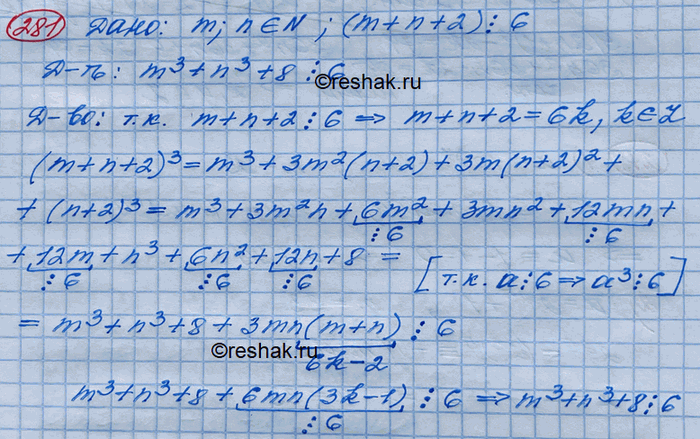 281 Дано: m; n ∈ N; (m+n+2)⋮6
Д-ть: m³+n³+8 ⋮ 6
©reshak.ru
Д-во: т.к. m+n+2⋮6 ⇒ m+n+2=6k, k∈Z
(m+n+2)³=m³+3m²(n+2)+3m(n+2)²+
+(n+2)³=m³+3m²n+6m²+3mn²+12mn+
⋮6 ⋮6
+12m+n³+6n²+12n+8= [т.к. a⋮6⇒a³⋮6]
⋮6 ⋮6 ⋮6
=m³+n³+8+3mn(m+n) ⋮ 6
©reshak.ru 6k-2
m³+n³+8+6mn(3k-1) ⋮ 6 ⇒ m³+n³+8⋮6
⋮6